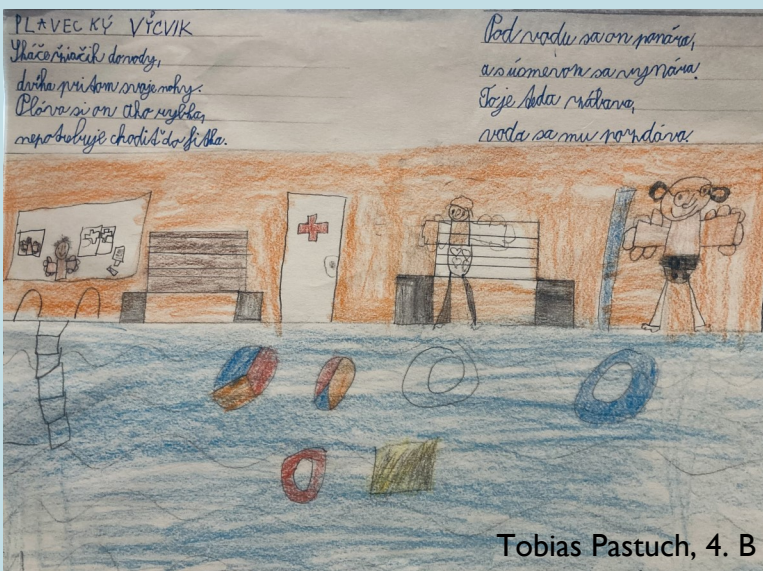 PLAVECKÝ VÝCVIK
Skáče žiačik do vody,
dvíha pri tom svoje nohy.
Pláva si on ako rybka,
nepotrebuje chodiť do fitka.
Pod vodu sa on ponára,
a s úsmevom sa vynára.
To je teda zábava,
voda sa mu pozdáva.
Tobias Pastuch, 4. B